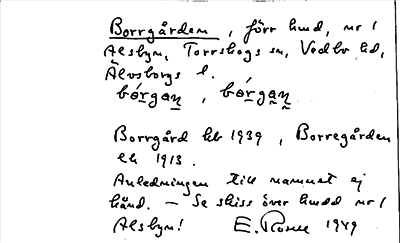 Borrgården, förr hmd, nr 1
Alsbyn, Torrskogs sn, Vedbo hd,
Älvsborgs l.
bórgan, bórgan
Borrgård hb 1939, Borregården
ek 1913.
Anledningen till namnet ej
känd. – Se skiss över hmdd nr 1
Alsbyn! E. Rosell 1949